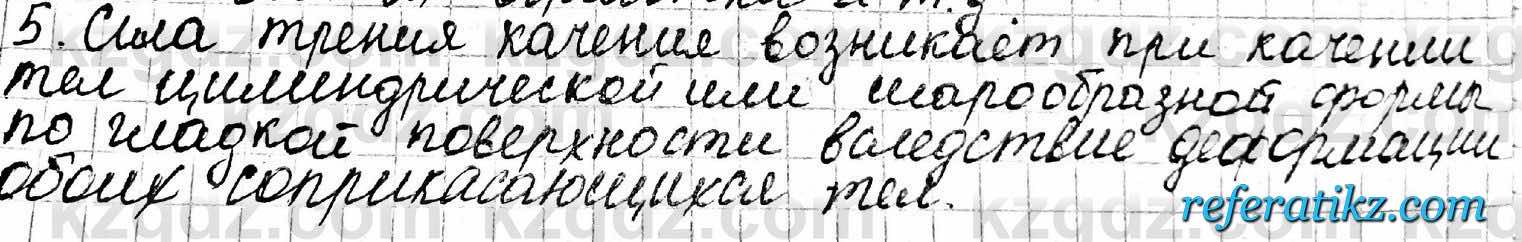 5. Сила трения качения возникает при качении
тел цилиндрической или шарообразной формы
по гладкой поверхности вследствие деформации
обоих соприкасающихся тел.
referatikz.com